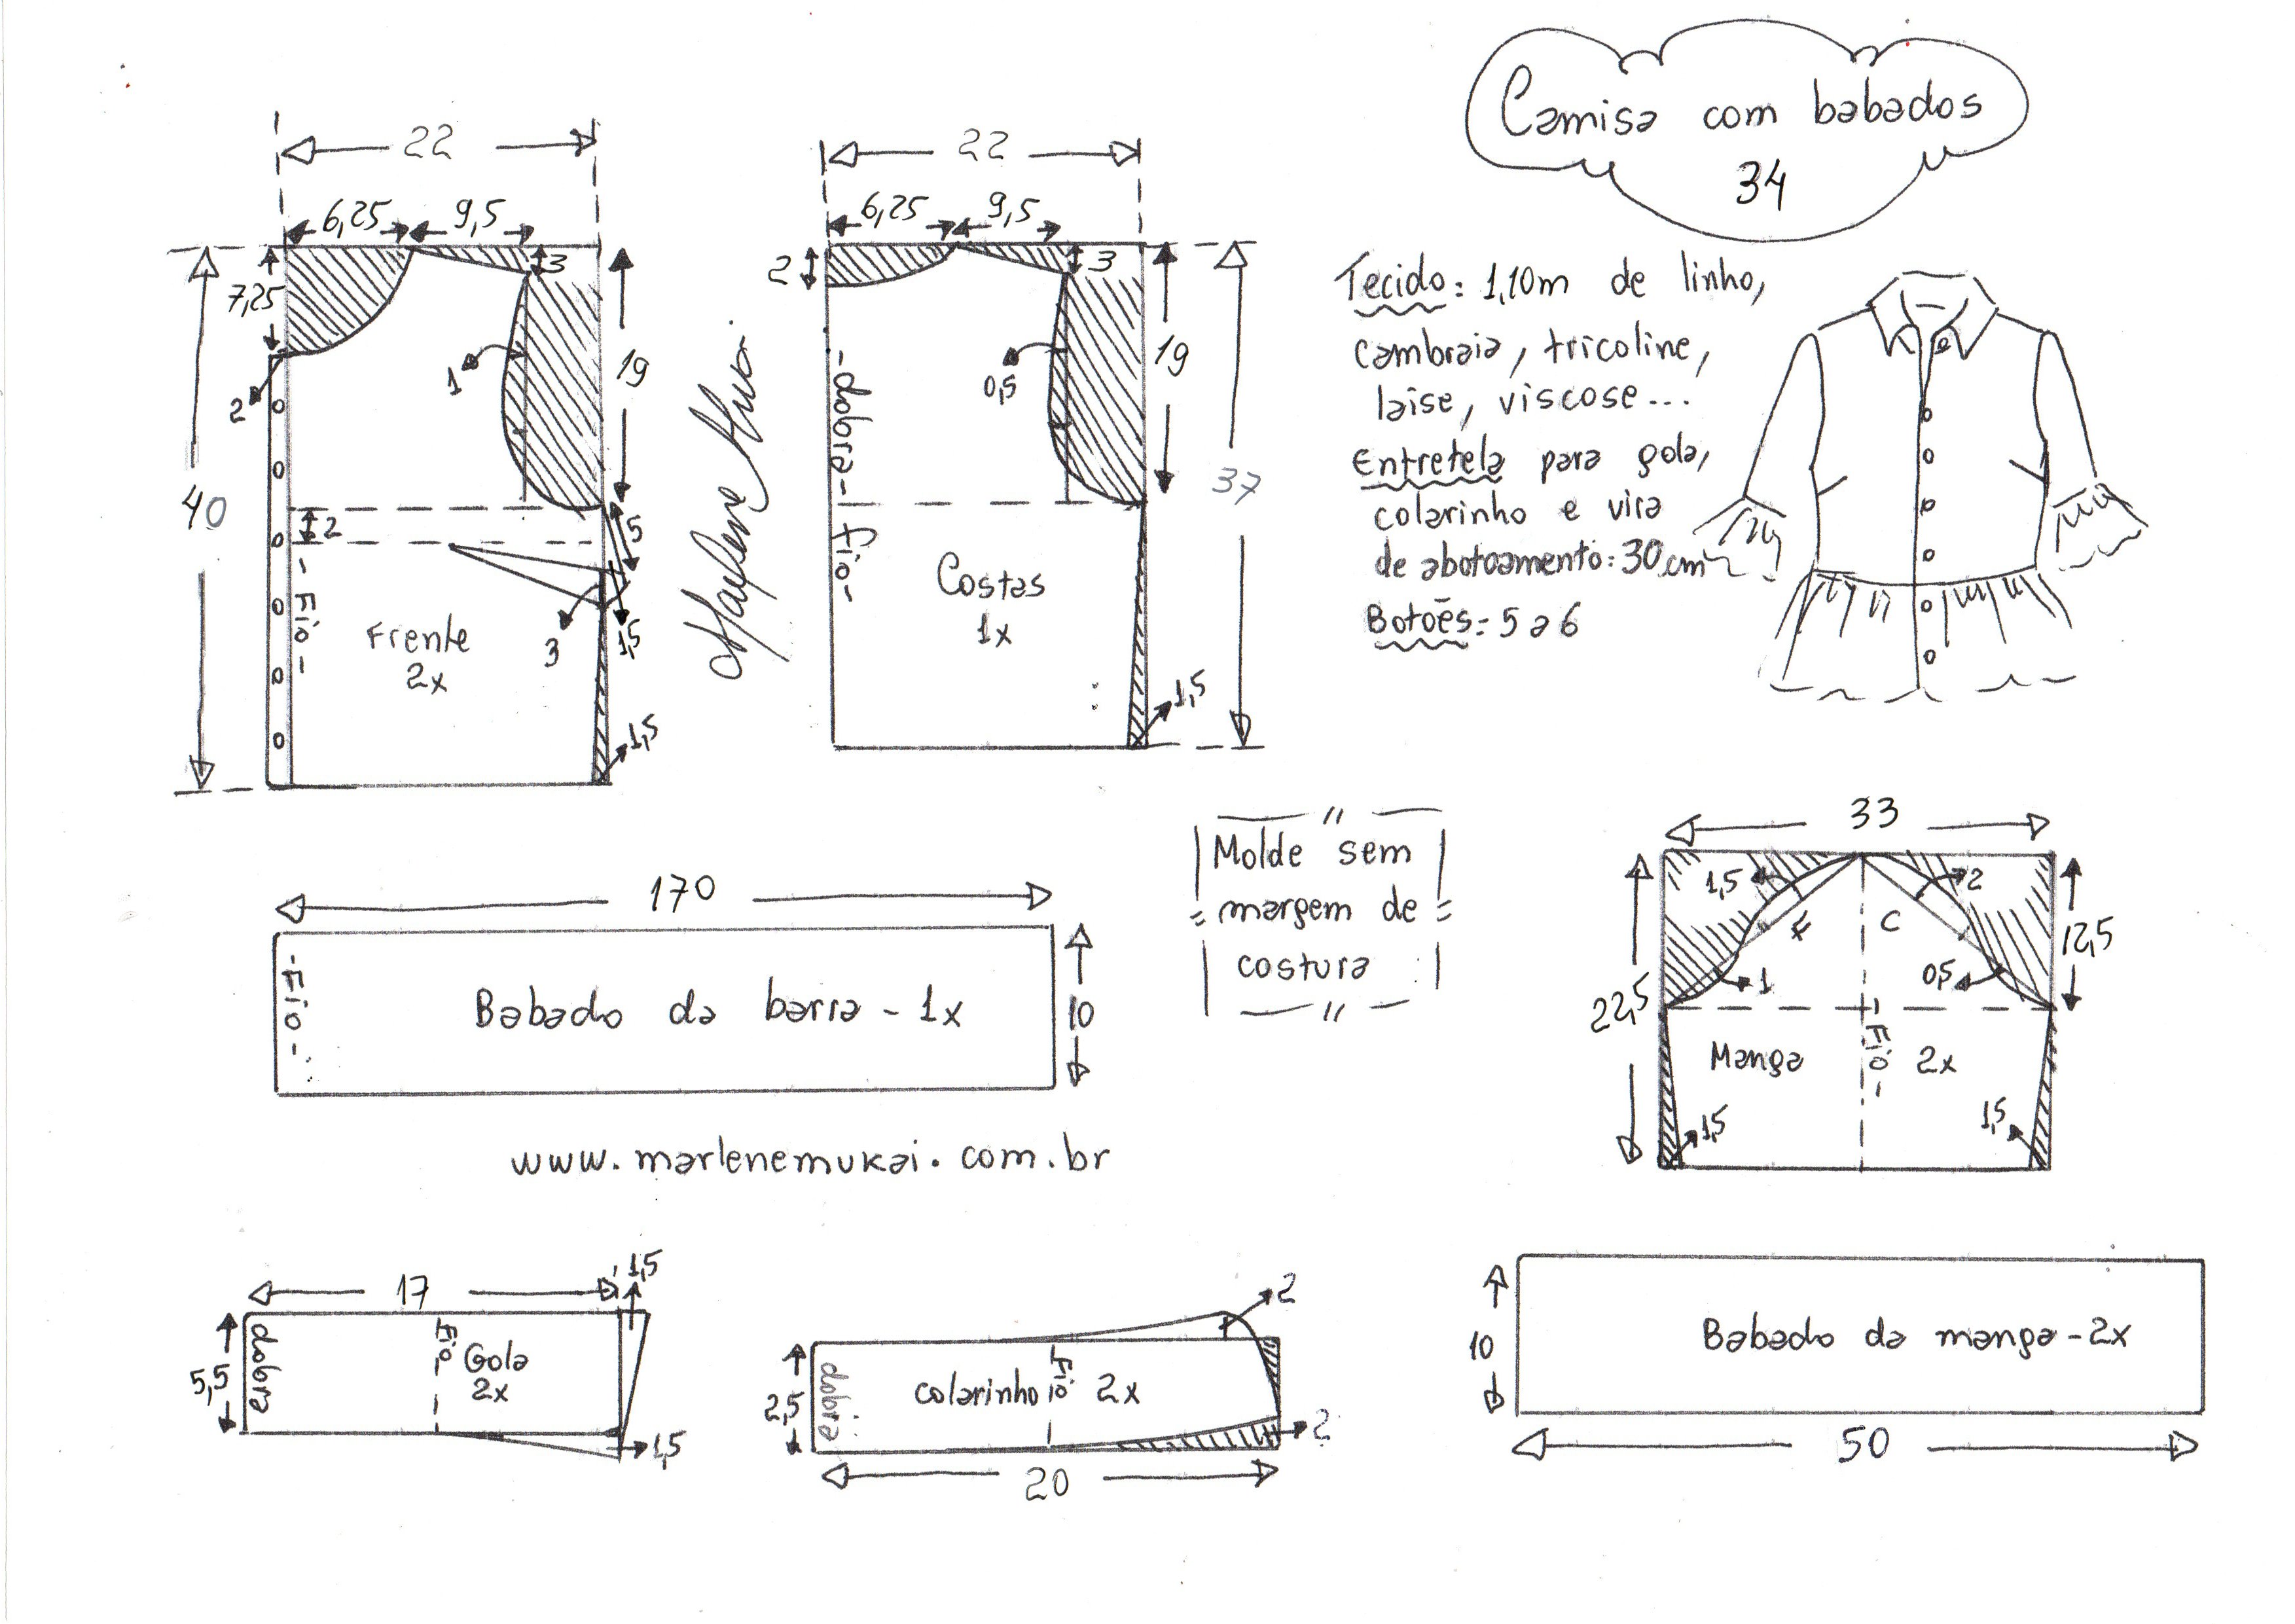 Camisa com babados
34
22
6,25
9,5
3
7,25
2
1
19
40
2
5
Fio
3
1,5
Frente
2x
1,5
Marlene Mukai
22
6,25
9,5
2
3
0,5
19
37
-dobra- fio-
Costas
1x
1,5
Tecido: 1,10m de linho,
cambraia, tricoline,
laise, viscose...
Entretela para gola,
colarinho e vira
de abotoamento: 30 cm
Botões: 5 a 6
170
-Fio-
Babado da barra - 1x
10
Molde sem
margem de
costura
33
1,5
2
F
C
12,5
1
0,5
22,5
Manga
Fio-
2x
1,5
1,5
www.marlenemukai.com.br
17
1,5
dobra
Fio
Gola
2x
5,5
1,5
2
2,5
dobra
colarinho
Fio
2x
2
20
10
Babado da manga - 2x
50